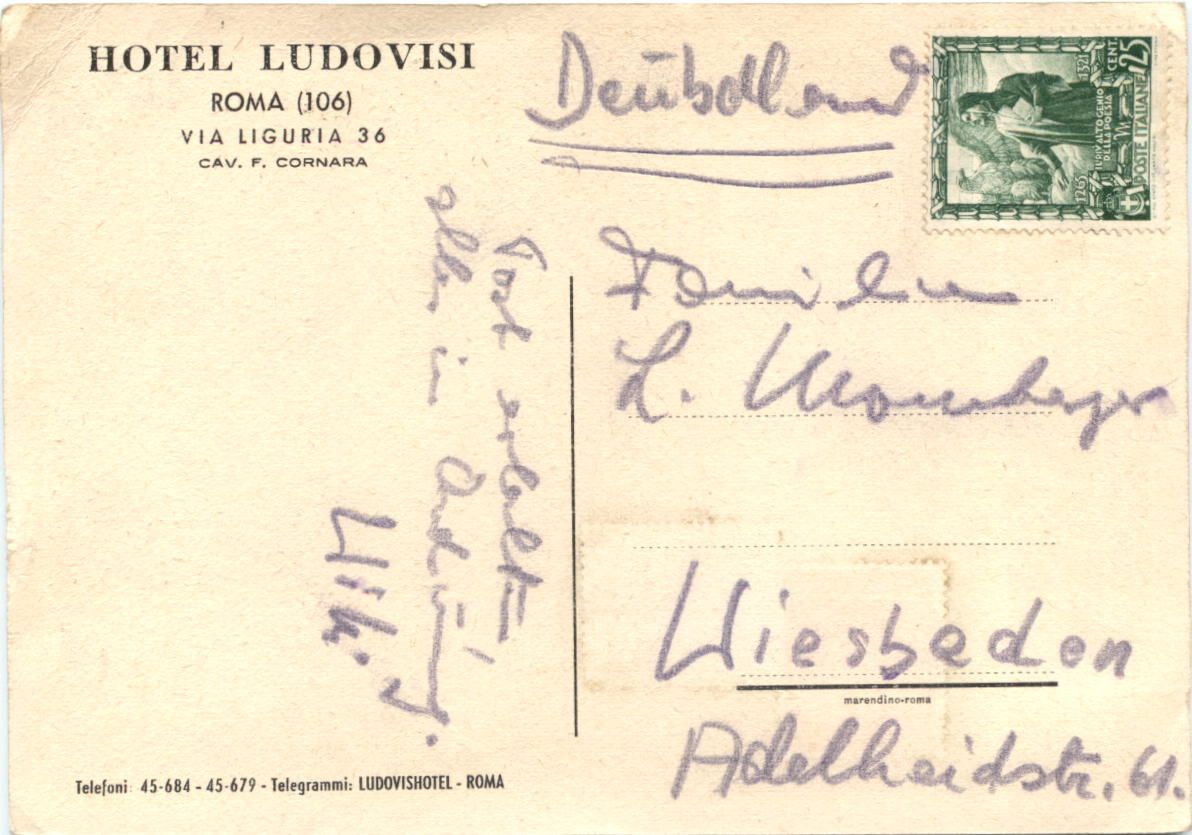 HOTEL LUDOVISI
ROMA (106)
VIA LIGURIA 36
CAV. F. CORNARA
Deutschland
1265
1321
IL DIV ALTO GENIO
DELLA POESIA
POSTE ITALIANE
CENT. 25
Post erhalten,
alles in Ordnung.
Familie
L. Momberger
Wiesbaden
marendino-roma
Adelheidstr. 61.
Telefoni: 45-684 - 45-679 - Telegrammi: LUDOVISHOTEL - ROMA